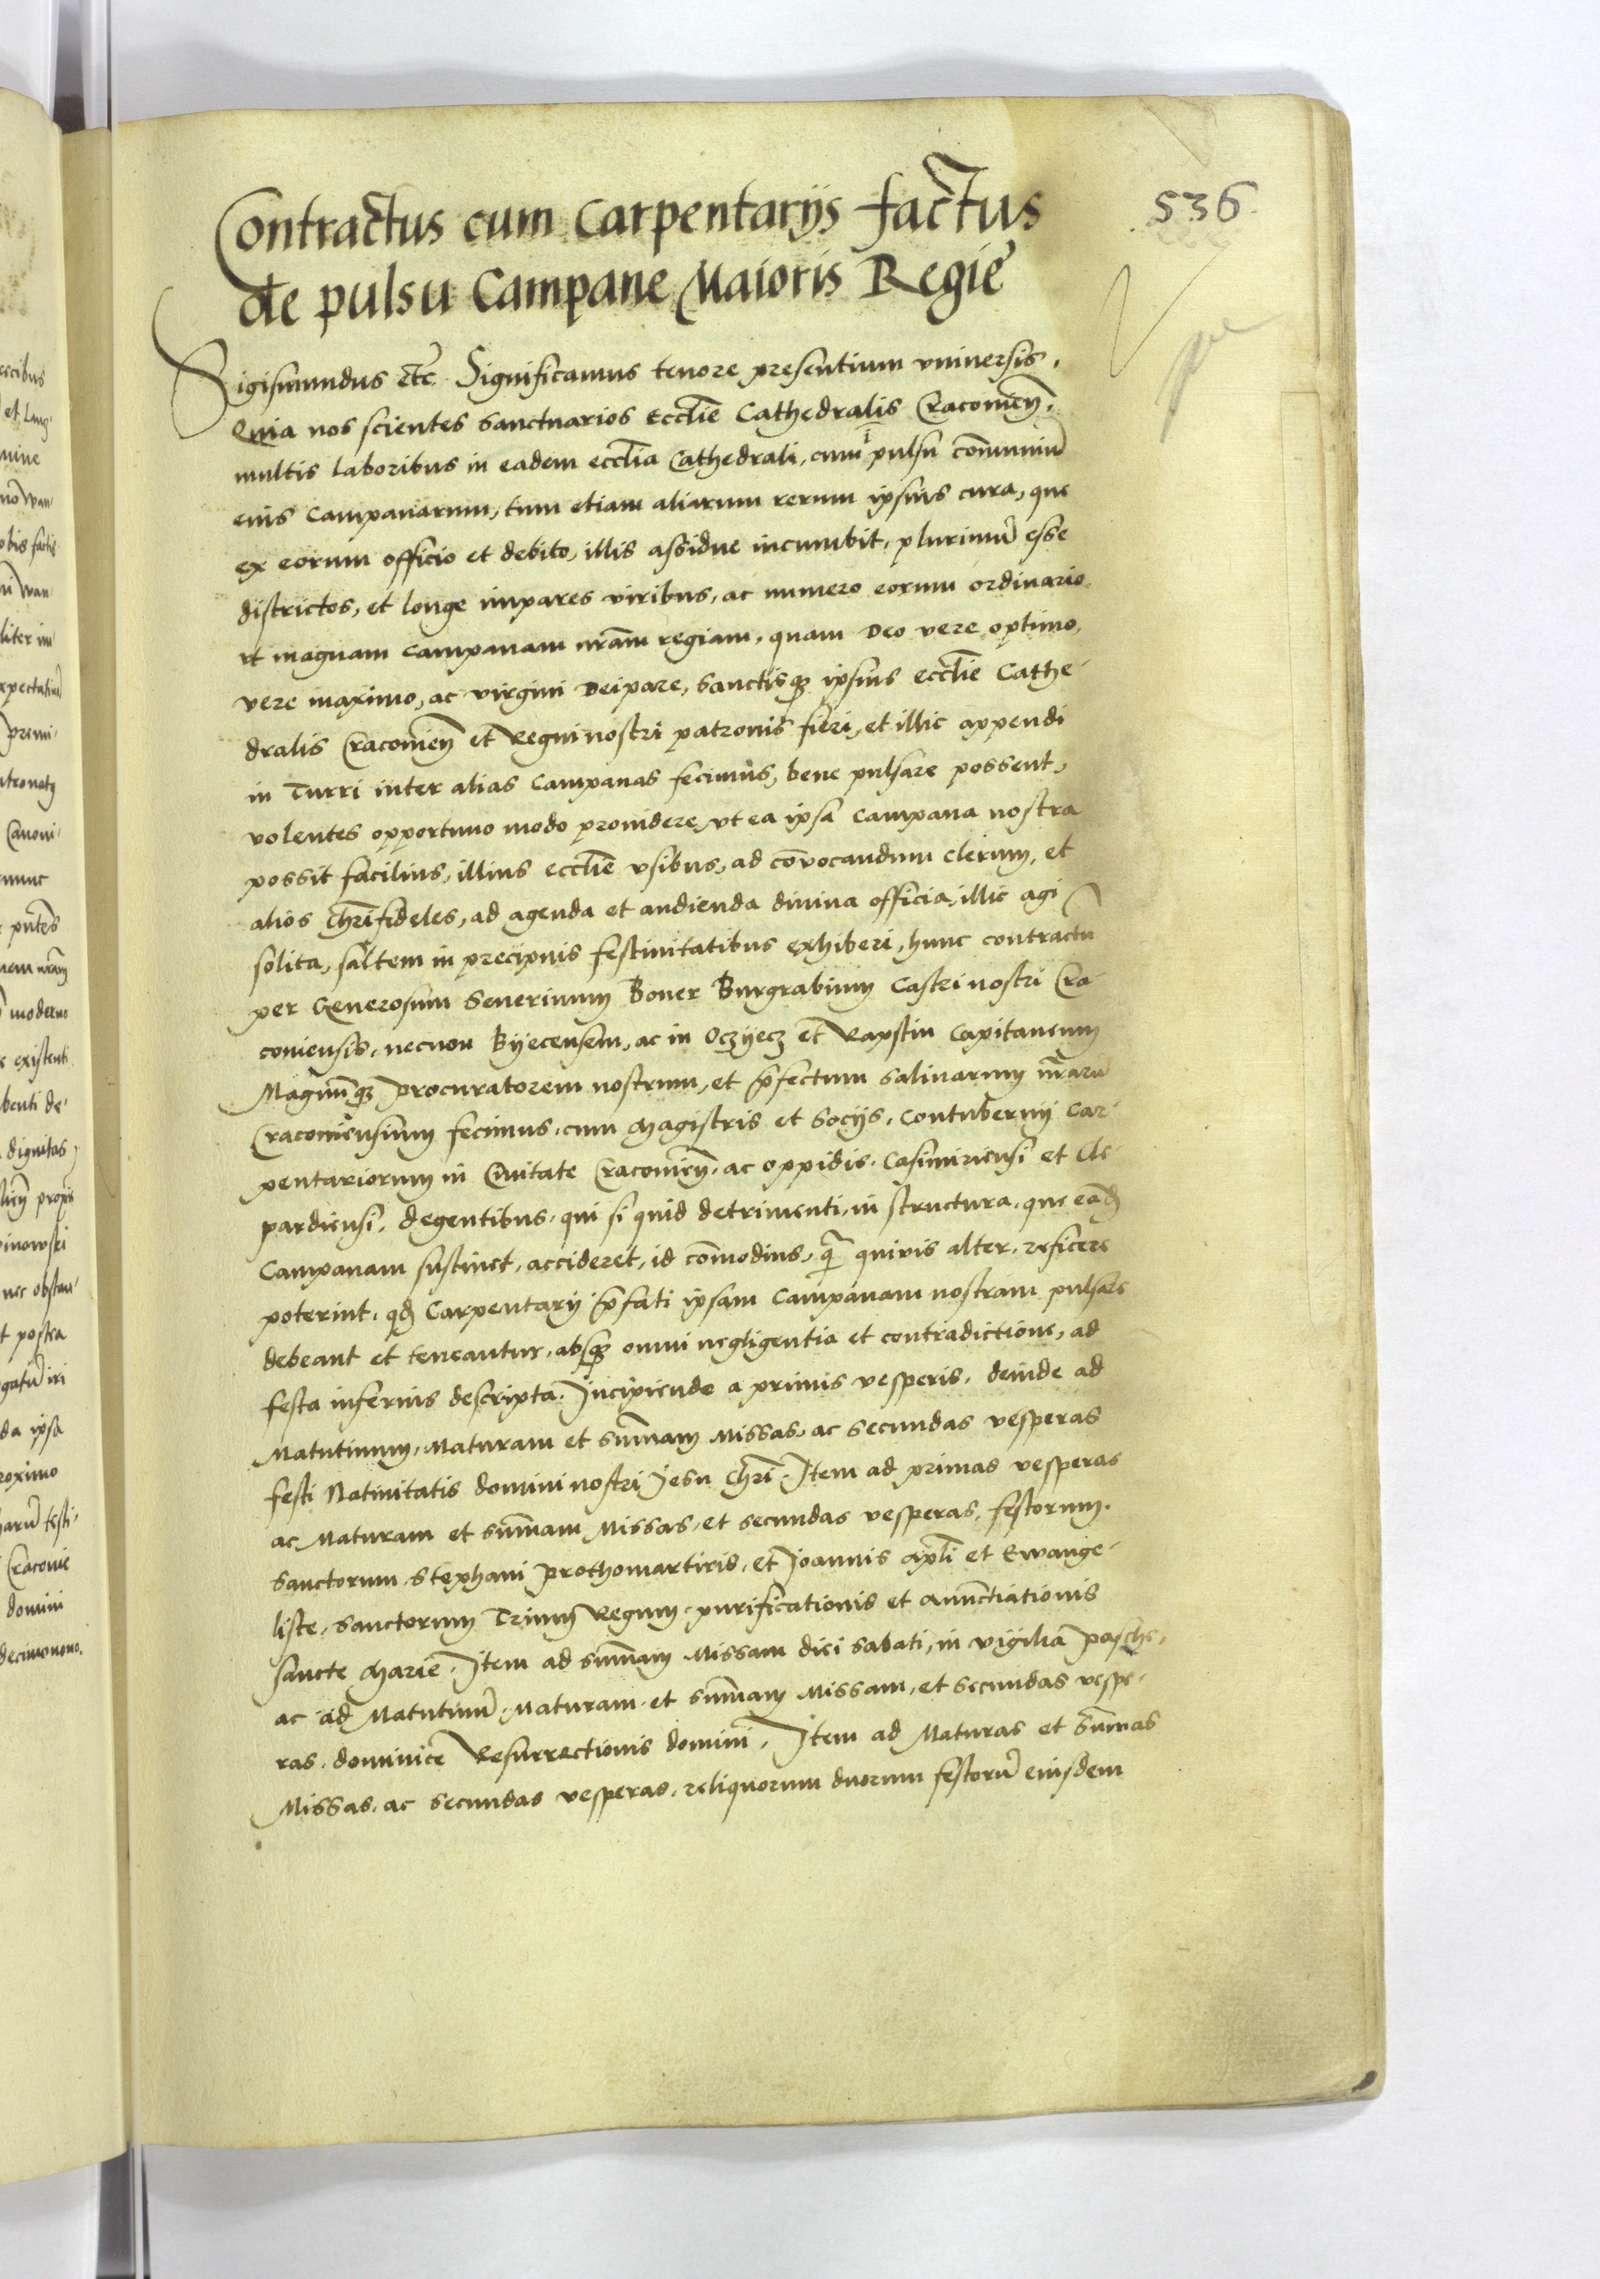 536
Contractus cum Carpentarijs factus
de pulsu Campane Maioris Regie
Sigismundus etc̃. Significamus tenore presentium vniuersis.
Quia nos scientes sanctuarios Eccl̃ie Cathedralis Cracouieñ.
multis laboribus in eadem eccl̃ia Cathedrali, cum ĩ pulsu com̃uniũ
eius campanarum, tum etiam aliarum rerum ipsius cura, que
ex eorum officio et debito, illis assidue incumbit, plurimũ esse
districtos, et longe impares viribus, ac numero eorum ordinario
vt magnam campanam nr̃am regiam, quam Deo vere optimo,
vere maximo, ac virgini Deipare, Sanctisqꝫ ipsius eccl̃ie Cathe-
dralis Cracouieñ et Regni nostri patronis fieri, et illic appendi
in Turri inter alias Campanas fecimus, bene pulsare possent,
volentes opportuno modo prouidere, vt ea ipsa Campana nostra
possit facilius, illius eccl̃ie vsibus, ad cõvocandum clerum, et
alios chr̃ifideles, ad agenda et audienda diuina officia, illic agi
solita, saltem in precipuis festiuitatibus exhiberi, hunc contractũ
per Generosum Seuerinum Boner Burgrabium Castri nostri Cra-
couiensis, necnon Byecensem, ac in Oczyecz et Rapstin Capitaneum
Magnũqꝫ procuratorem nostrum, et p̃fectum salinarum nr̃arũ
Cracouiensium fecimus, cum Magistris et Socijs, Contubernij Car-
pentariorum in Ciuitate Cracouieñ. ac oppidis, Casimiriensi et Cle-
pardiensi, degentibus, qui si quid detrimenti, in structura, que eãdẽ
Campanam sustinet, accideret, id com̃odius, q̃ quiuis alter, reficere
poterint, qđ Carpentarij p̃fati ipsam Campanam nostram pulsare
debeant et teneantur, absqꝫ omni negligentia et contradictione, ad
festa inferius descripta. Incipiendo a primis vesperis, deinde ad
Matutinum, Maturam et sum̃am Missas, ac secundas vesperas
festi Natiuitatis domini nostri Jesu Chr̃i. Item ad primas vesperas
ac Maturam et sum̃am Missas, et secundas vesperas, festorum.
Sanctorum Stephani Prothomartiris, et Joannis apl̃i et Ewange-
liste, Sanctorum Trium Regum, purificationis et Anunctiationis
sancte Marie. Item ad sum̃am Missam diei sabati, in vigilia pasche,
ac ad Matutinũ, Maturam et sum̃am Missam, et secundas vespe-
ras, dominice Resurrectionis domini. Item ad Maturas et sum̃as
Missas, ac secundas vesperas, reliquorum duorum festorũ eiusdem